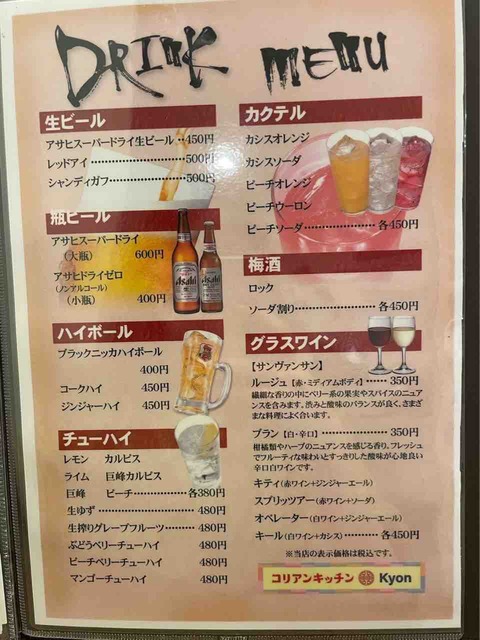 DRINK MENU
生ビール
アサヒスーパードライ生ビール‥450円
レッドアイ………………500円
シャンディガフ…………500円
瓶ビール
アサヒスーパードライ
(大瓶) 600円
アサヒドライゼロ
(ノンアルコール)
(小瓶) 400円
Asahi
Asahi
ハイボール
ブラックニッカハイボール
400円
コークハイ 450円
ジンジャーハイ 450円
チューハイ
レモン カルピス
ライム 巨峰カルピス
巨峰 ピーチ…………各380円
生ゆず………………480円
生搾りグレープフルーツ………480円
ぶどうベリーチューハイ 480円
ピーチベリーチューハイ 480円
マンゴーチューハイ 480円
カクテル
カシスオレンジ
カシスソーダ
ピーチオレンジ
ピーチウーロン
ピーチソーダ………………各450円
梅酒
ロック
ソーダ割り………………各450円
グラスワイン
【サンヴァンサン】
ルージュ【赤・ミディアムボディ】……350円
繊細な香りの中にベリー系の果実やスパイスのニュア
ンスを含みます。渋みと酸味のバランスが良く、さまざ
まな料理によく合います。
ブラン【白・辛口】………………350円
柑橘類やハーブのニュアンスを感じる香り。フレッシュ
でフルーティな味わいとすっきりした酸味が心地良い
辛口白ワインです。
キティ(赤ワイン+ジンジャーエール)
スプリッツアー(赤ワイン+ソーダ)
オペレーター(白ワイン+ジンジャーエール)
キール(白ワイン+カシス)……各450円
※当店の表示価格は税込です。
コリアンキッチン Kyon